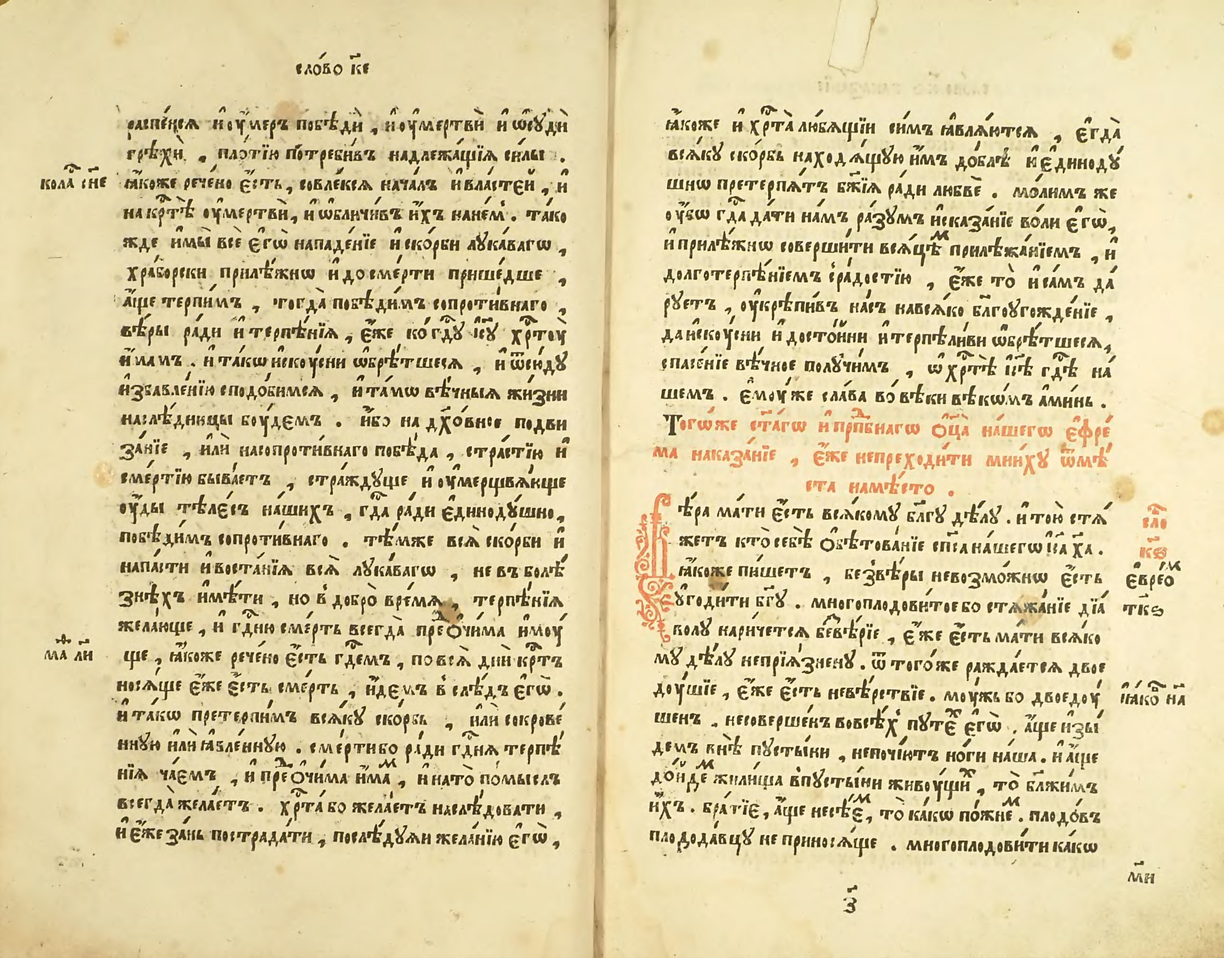 сло́во к҃е
распе́нсѧ и҆ оу҆́меръ побѣдѝ , и҆ оу҆мертвѝ и҆ ѡ҆сꙋдѝ
грѣхѝ , пло́тїю потреби́въ надлежа́щїѧ си́лы .
кола́ сне
ꙗ҆́коже рече́но є҆́сть , совле́ксѧ нача́лъ и҆ власте́й , и҆
на кр҃тѣ оу҆мертвѝ , и҆ ѡ҆бличи́въ и҆́хъ нане́м . та́ко
жде и҆мы̀ всѐ є҆гѡ̀ нападе́нїе и҆ ско́рби лꙋка́вагѡ ,
хра́борски прилѣ́жнѡ и҆ до сме́рти прише́дше ,
а҆́ще те́рпимъ , тогда̀ побѣди́мъ сопроти́внаго ,
вѣ́ры ра́ди и҆ терпѣ́нїѧ , є҆́же ко гд҃ꙋ і҆с҃ꙋ хр҃тоу
и҆́мамъ . и҆ та́кѡ и҆скоу́сни ѡ҆брѣ́тшесѧ , и҆ ѿсю́дꙋ
и҆збавле́нїю сподо́бимсѧ , и҆ та́мѡ вѣ́чныѧ жи́зни
наслѣ́дницы боу́демъ . и҆́бо на дх҃о́вное подви
за́нїе , и҆лѝ насопроти́внаго побѣ́да , стра́стїю и҆
сме́ртїю быва́етъ , стра́ждꙋще и҆ оу҆мерщвлѧ́юще
оу҆́ды тѣле́съ на́шихъ , гд҃а ра́ди є҆динодꙋ́шно ,
побѣди́мъ сопроти́внаго . тѣ́мже всѧ̀ ско́рби и҆
напа́сти и҆ воста́нїѧ всѧ̀ лꙋка́вагѡ , не въ болѣ́
знѣхъ и҆мѣ́ти , но в до́бро вре́мѧ , терпѣ́нїѧ
жела́юще , и҆ гд҃ню сме́рть всегда̀ пре́ѻчима и҆моу́
ма л҃и
ще , ꙗ҆́коже рече́но є҆́сть гд҃емъ , по всѧ̀ дни̑ кр҃тъ
носѧ́ще є҆́же є҆́сть сме́рть , и҆́демъ в слѣ́дъ є҆гѡ̀ .
и҆ та́кѡ претерпи́мъ всѧ́кꙋ ско́рбь , и҆лѝ сокрове́
ннꙋю и҆лѝ ꙗ҆вле́ннꙋю . сме́рти бо ра́ди гд҃нѧ терпѣ́
нїѧ ча́емъ , и҆ пре́ѻчима и҆́мамъ , и҆ на то̀ по́мыслъ
всегда̀ жела́етъ . хр҃та̀ бо жела́етъ наслѣ́довати ,
и҆ є҆́же за́нь пострада́ти , послѣ́дꙋѧи жела́нїю є҆гѡ̀ ,
ꙗ҆́коже и҆ хр҃та̀ лю́бѧщїи си́мъ ꙗ҆влѧ́ютсѧ , є҆гда̀
всѧ́кꙋ ско́рбь находѧ́щꙋю и҆̀мъ до́блѣ и҆ є҆динодꙋ́
шнѡ претерпѧ́тъ бж҃їѧ ра́ди любвѐ . мо́лимъ же
оу҆́бѡ гд҃а да́ти на́мъ ра́зꙋмъ и҆сказа́нїе во́ли є҆гѡ̀ ,
и҆ прилѣ́жнѡ соверши́ти всѧ́цѣм прилѣжа́нїемъ , и҆
долготерпѣ́нїемъ с ра́достїю , є҆́же то̀ и҆ са́мъ да́
рꙋетъ , оу҆крѣпи́въ на́съ на всѧ́ко бл҃гоугожде́нїе ,
да и҆скоу́сни и҆ досто́йни и҆ терпѣли́ви ѡ҆брѣ́тшесѧ ,
спасе́нїе вѣ́чное полꙋчи́мъ , ѡ҆ хр҃тѣ̀ і҆с҃ѣ гд҃ѣ на́
шемъ . є҆моу́же сла́ва во вѣ́ки вѣкѡ́мъ а҆ми́нь .
Тогѡ́же ст҃а́гѡ и҆ прп҃бнагѡ ѻц҃а̀ на́шегѡ є҆фре́
ма наказа́нїе , є҆́же непреходи́ти мни́хꙋ ѿ мѣ́
ста на мѣ́сто .
сло
к҃ѕ
Вѣ́ра ма́ти є҆́сть всѧ́комꙋ бл҃гꙋ дѣ́лꙋ . и҆ то́ю стѧ́
жетъ кто̀ себѣ̀ ѻ҆бѣтова́нїе сп҃са на́шегѡ і҆с҃а х҃а .
є҆вре́ом
ꙗ҆́коже пи́шетъ , без вѣ́ры невозмо́жнѡ є҆́сть
оугоди́ти бг҃ꙋ . многоплодови́тое бо стѧжа́нїе дїа́
волꙋ нарича́етсѧ безвѣ́рїе , є҆́же є҆́сть ма́ти всѧ́ко
мꙋ дѣ́лꙋ непрїѧ́зненꙋ . ѿ того́же ражда́етсѧ двое
и҆а́ков н҃а
доу́шїе , є҆́же є҆́сть невѣ́рствїе . моу́жь бо двоедоу́
шенъ , несоверше́нъ во всѣ́х пꙋте́х є҆гѡ̀ . а҆́ще и҆зы́
демъ внѣ̀ пꙋсты́ни , непочїю́тъ но́ги на́ша . и҆ а҆́ще
до́йдем жили́ща в пꙋсты́ни живоу́щих , то̀ бл҃жи́мъ
и҆́хъ . бра́тїе , а҆́ще несѣ́ем , то̀ ка́кѡ по́жнем . плодо́въ
плодода́вцꙋ не принося́ще . многоплодови́ти ка́кѡ
мн
з҃